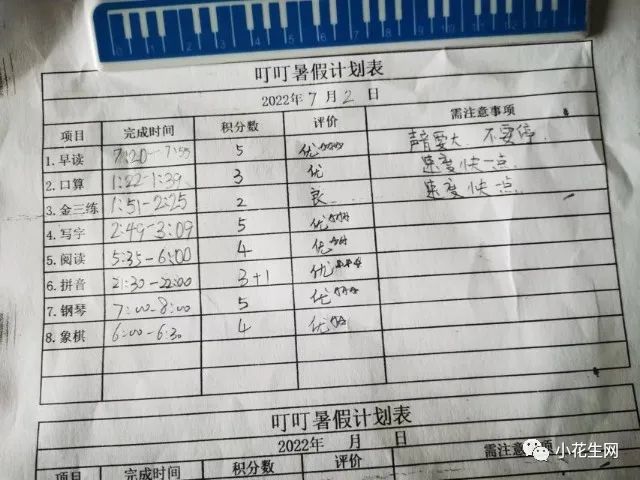 叮叮暑假计划表
2022年 7 月 2 日
项目 完成时间 积分数 评价 需注意事项
1.早读 7:20-7:55 5 优 声音要大、不要停.
2.口算 1:22-1:39 3 优 速度快一点.
3.金三练 1:51-2:25 2 良 速度快一点
4.写字 2:49-3:09 5 优
5.阅读 5:35-6:00 4 优
6.拼音 21:30-22:00 3+1 优
7.钢琴 7:00-8:00 5 优
8.象棋 6:00-6:30 4 优
叮叮暑假计划表
2022年 月 日
项目 完成时间 积分数 评价 需注意事项
小花生网